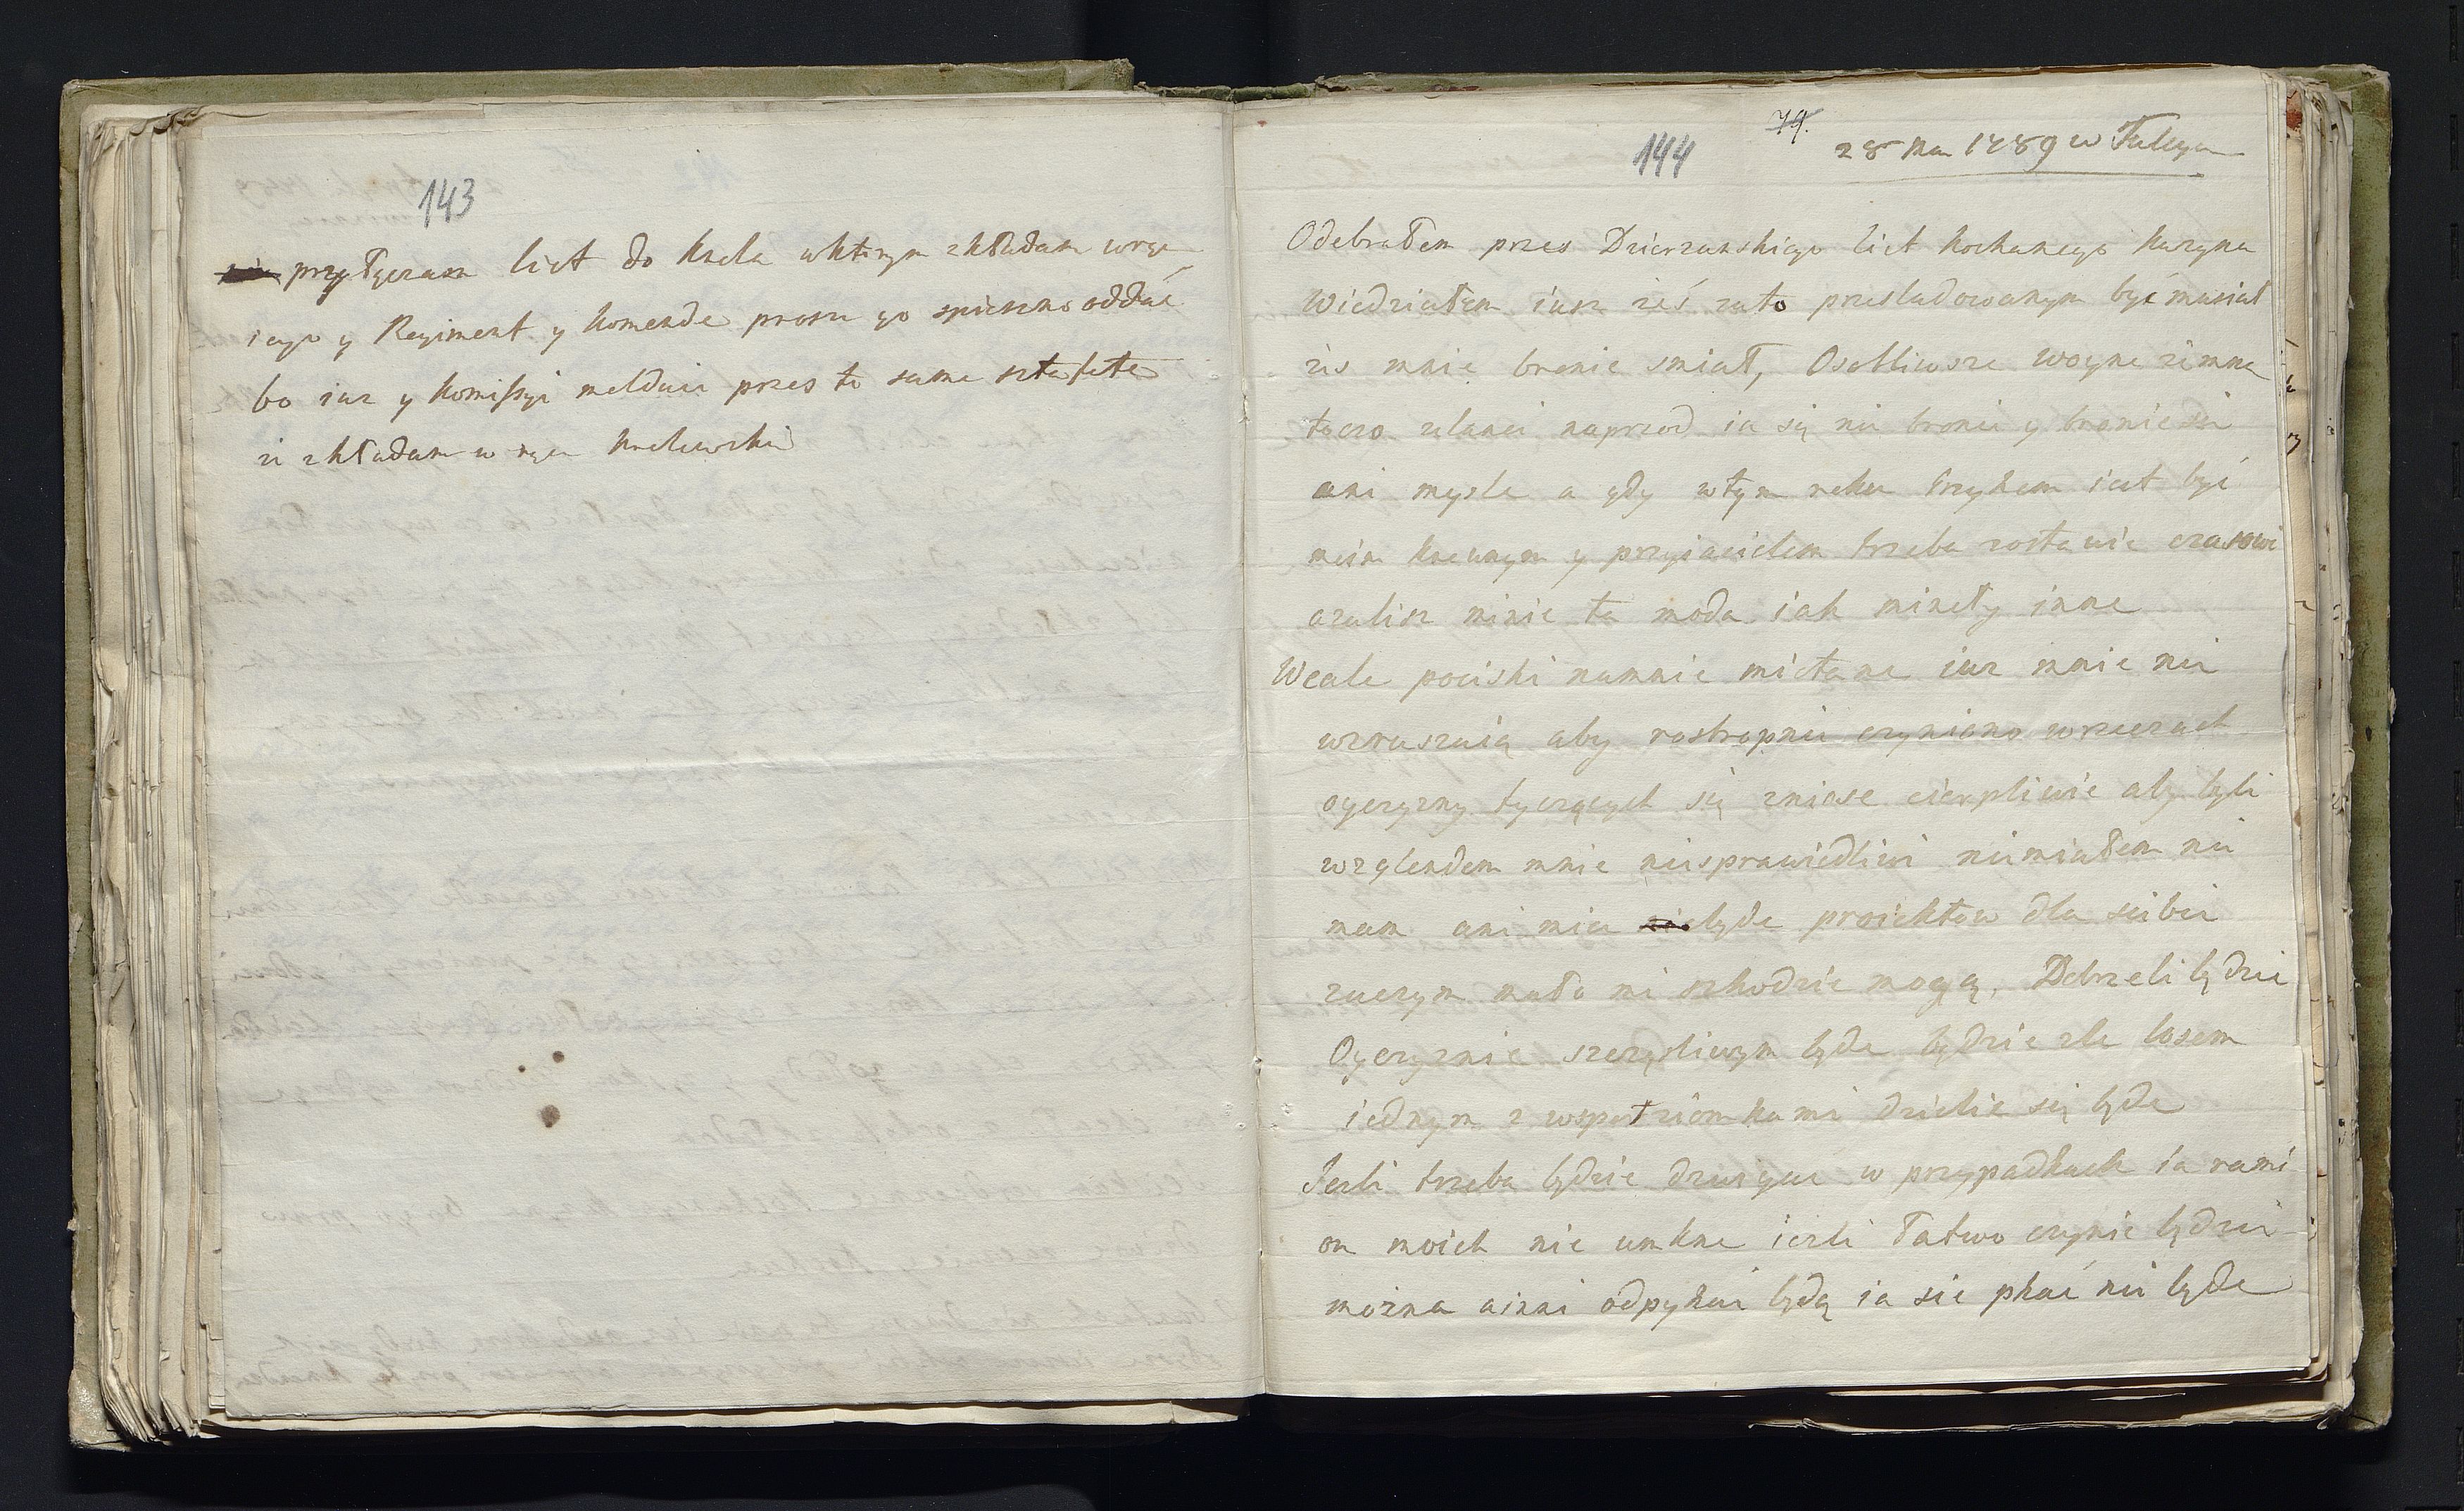 143
przyłączam list do Krola wktorym zkładam wręce
iego y Regiment y komende prosze go spieszno oddać
bo iuz y Komissyi melduie przes te same sztafete
ze zkładam w ręce Krolewskie
144
79.
28 Mar 1789 w Tulczyn
Odebrałem przes Dzierzanskiego list kochanego Kuzyna
Wiedziałem iusz ześ zato przesladowanym być musiał
zes mnie bronic smiał, Osobliwsze woyne zemna
toczo ulanci naprzod ia się nie bronie y bronic sie
ani mysle a gdy wtym roku Grzykem iest być
moim krewnym y przyiacielem trzeba zostawic czasowi
azalisz minie ta moda iak mineły inne
Wcale pociski namnie miotane iuz mnie nie
wzruszaią aby rostropnie czyniono wrzeczach
oyczyzny tyczących się zniose cierpliwie aby byli
wzglendem mnie niesprawiedliwi niemiałem nie
mam ani miec będe proiektow dla siebie
zaczym mało mi szkodzic mogą, Dobrzeli będzie
Oyczyznie szczęsliwym będe będzie zle losem
iednym z wspołziomkami dzielic się będe
Jesli trzeba będzie dzwigac w przypadkach ia rami
on moich nie umkne iesli łatwo czynic będzie
można a inni odpychac będą ia sie phać nie będe